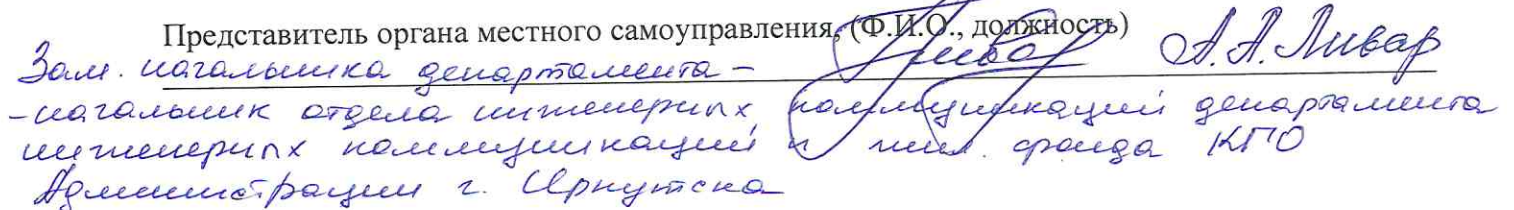 Представитель органа местного самоуправления, (Ф.И.О., должность)
Зам. начальника департамента – А.А. Ливар
-начальник отдела инженерных коммуникаций департамента
инженерных коммуникаций и жил. фонда КГО
Администрации г. Иркутска